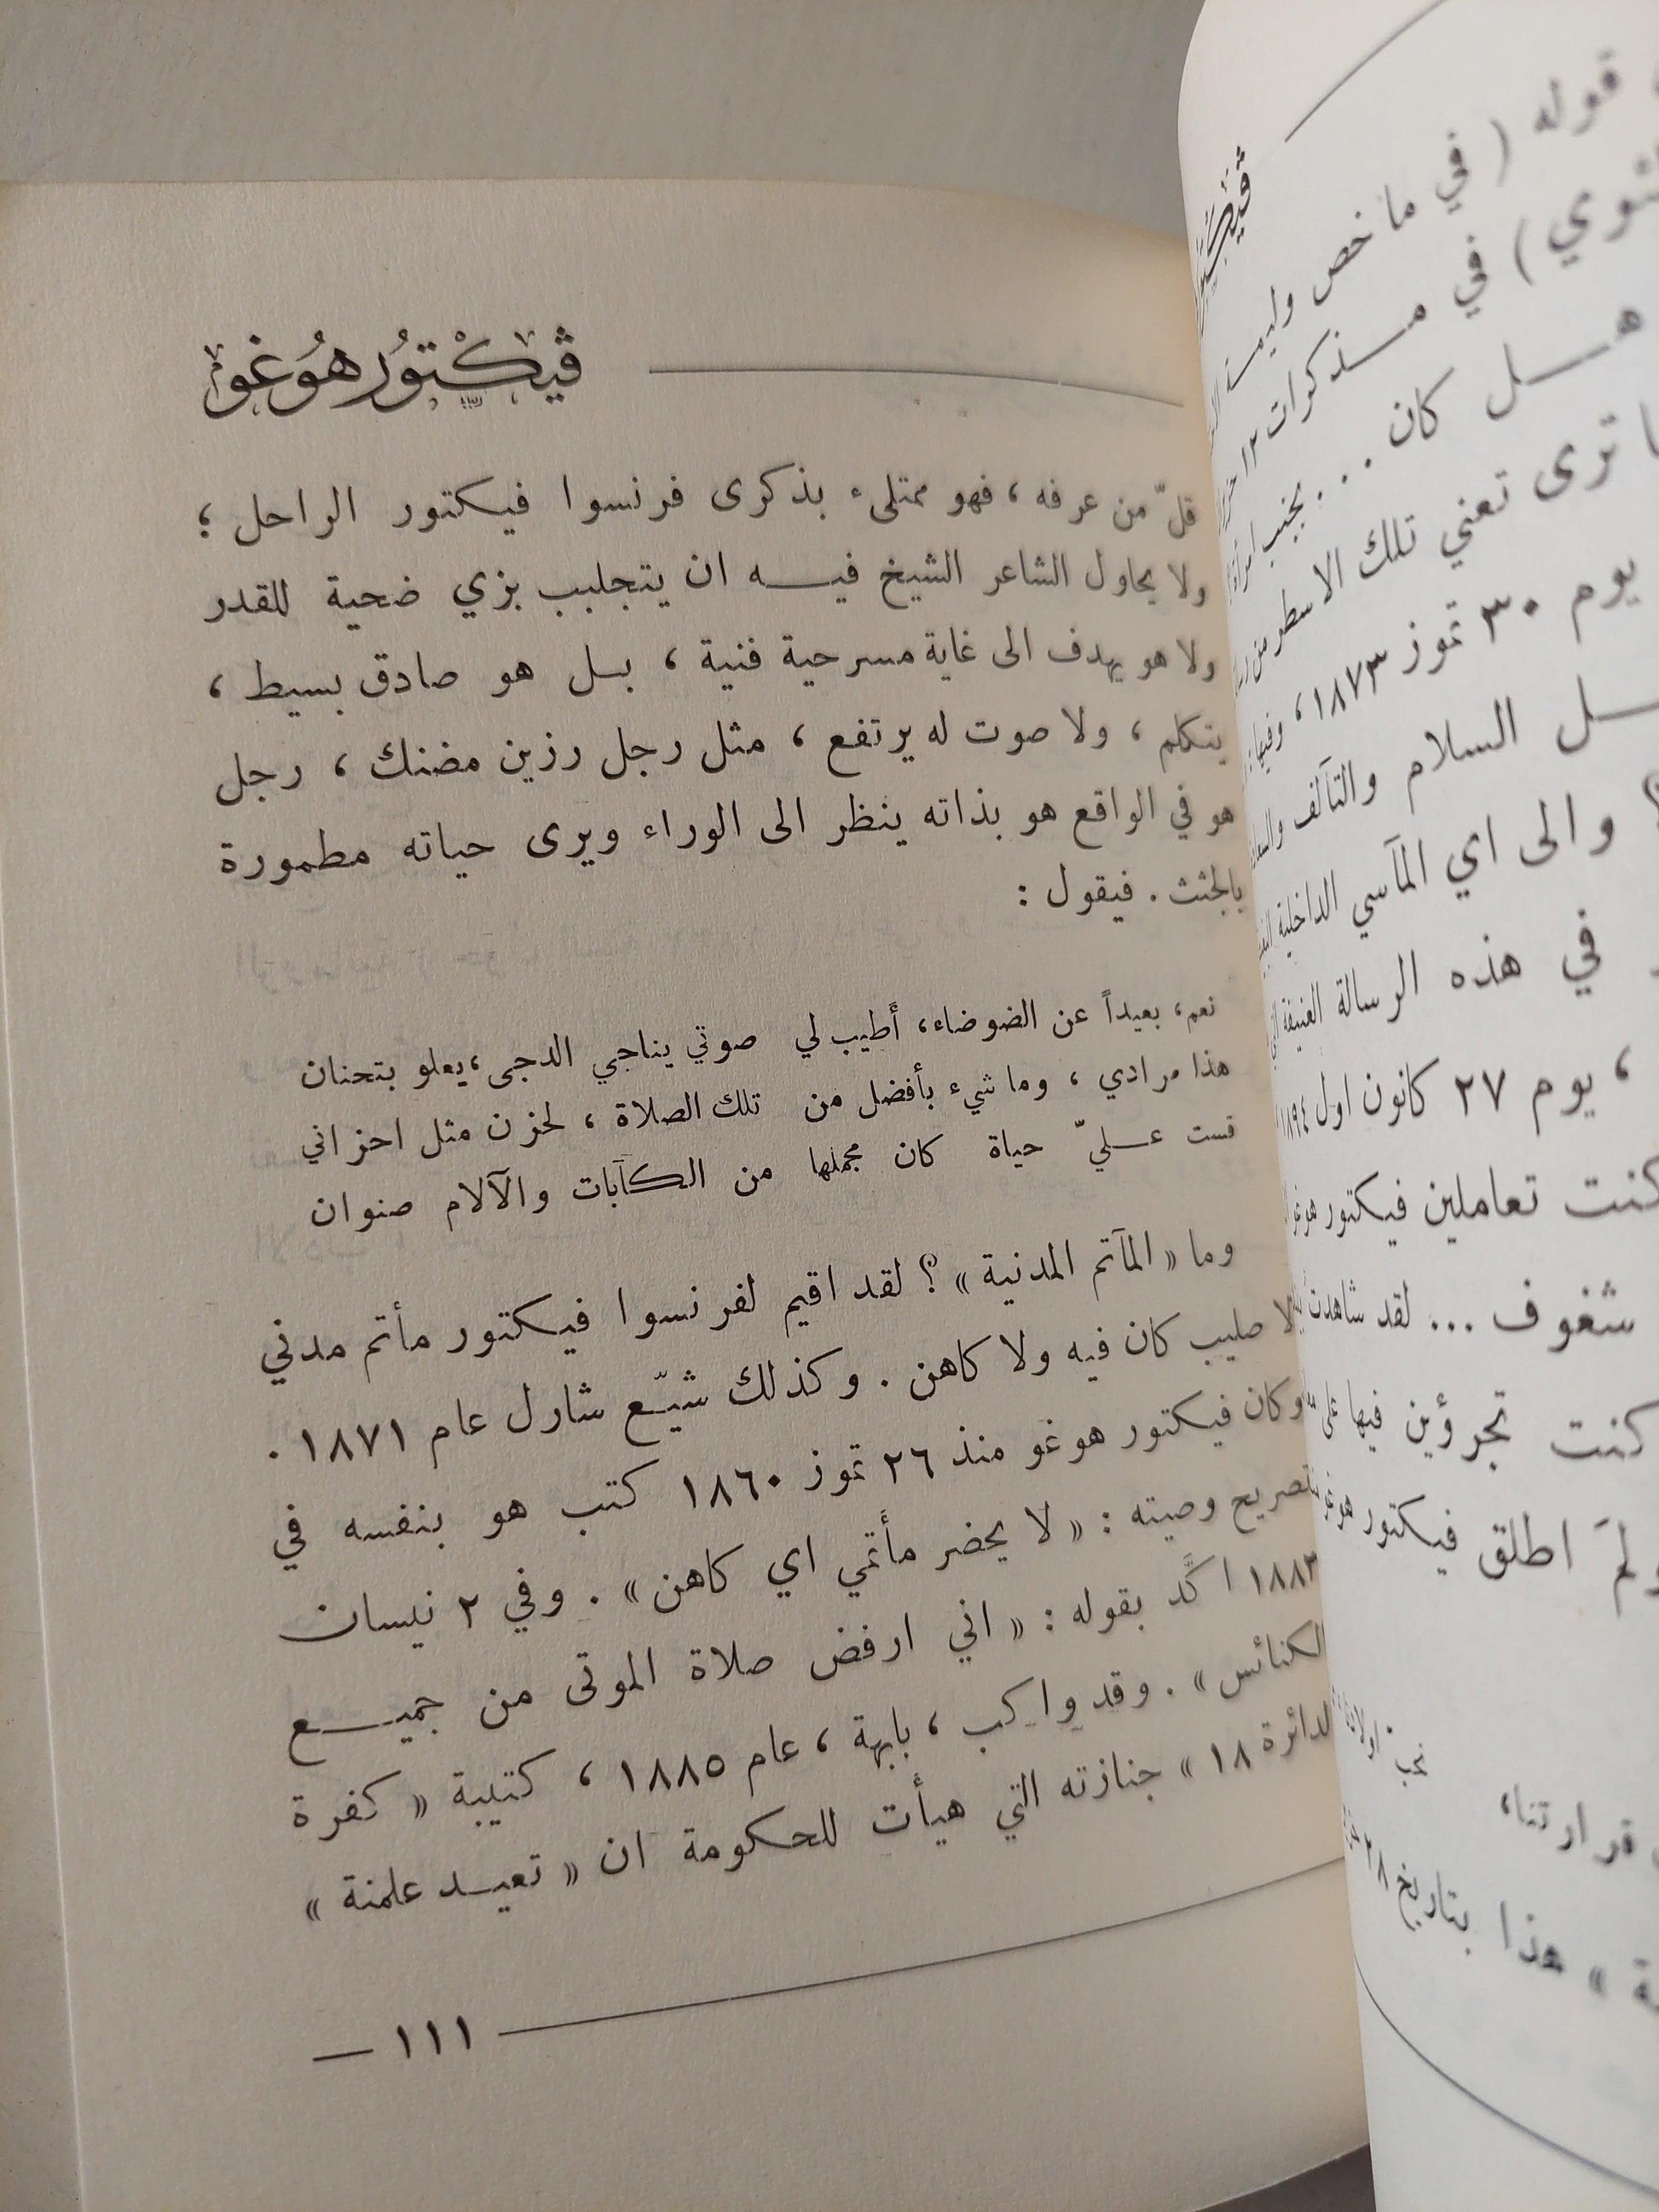 ڤيكْتوُر هوُغو
قلّ من عرفه ، فهو ممتلىء بذكرى فرنسوا فيكتور الراحل ؛
ولا يحاول الشاعر الشيخ فيه ان يتجلبب بزي ضحية للقدر
ولا هو يهدف الى غاية مسرحية فنية ، بل هو صادق بسيط ،
يتكلم ، ولا صوت له يرتفع ، مثل رجل رزين مضنك ، رجل
هو في الواقع هو بذاته ينظر الى الوراء ويرى حياته مطمورة
بالجثث . فيقول :
نعم ، بعيداً عن الضوضاء ، أطيب لي صوتي يناجي الدجى ، يعلو بتحنان
هذا مرادي ، وما شيء بأفضل من تلك الصلاة ، لحزن مثل احزاني
قست عليّ حياة كان مجملها من الكآبات والآلام صنوان
وما « المآتم المدنية » ؟ لقد اقيم لفرنسوا فيكتور مأتم مدني
لا صليب كان فيه ولا كاهن . وكذلك شيّع شارل عام ١٨٧١ .
وكان فيكتور هوغو منذ ٢٦ تموز ١٨٦٠ كتب هو بنفسه في
تصريح وصيته : « لا يحضر مأتمي اي كاهن » . وفي ٢ نيسان
١٨٨٣ اكَّد بقوله : « اني ارفض صلاة الموتى من جميع
الكنائس » . وقد واكب ، بابهة ، عام ١٨٨٥ ، كتيبة « كفرة
الدائرة ١٨ » جنازته التي هيأت للحكومة ان « تعيد علمنة »
١١١ —
قوله ( في ما خص وليمة
في مذكرات ١٢
هل كان ... يجنب امرأة
ترى تعني تلك الاسطر من
يوم ٣٠ تموز ١٨٧٣ ، وفيها
السلام والتآلف
والى اي المآسي الداخلية
في هذه الرسالة العنيفة
، يوم ٢٧ كانون اول
كنت تعاملين فيكتور هوغو
شغوف ... لقد شاهدت
كنت تجرؤين فيها على
ولمَ اطلق فيكتور هوغو
نحب اولادنا
قرارتنا ،
» هذا بتاريخ ٢٨